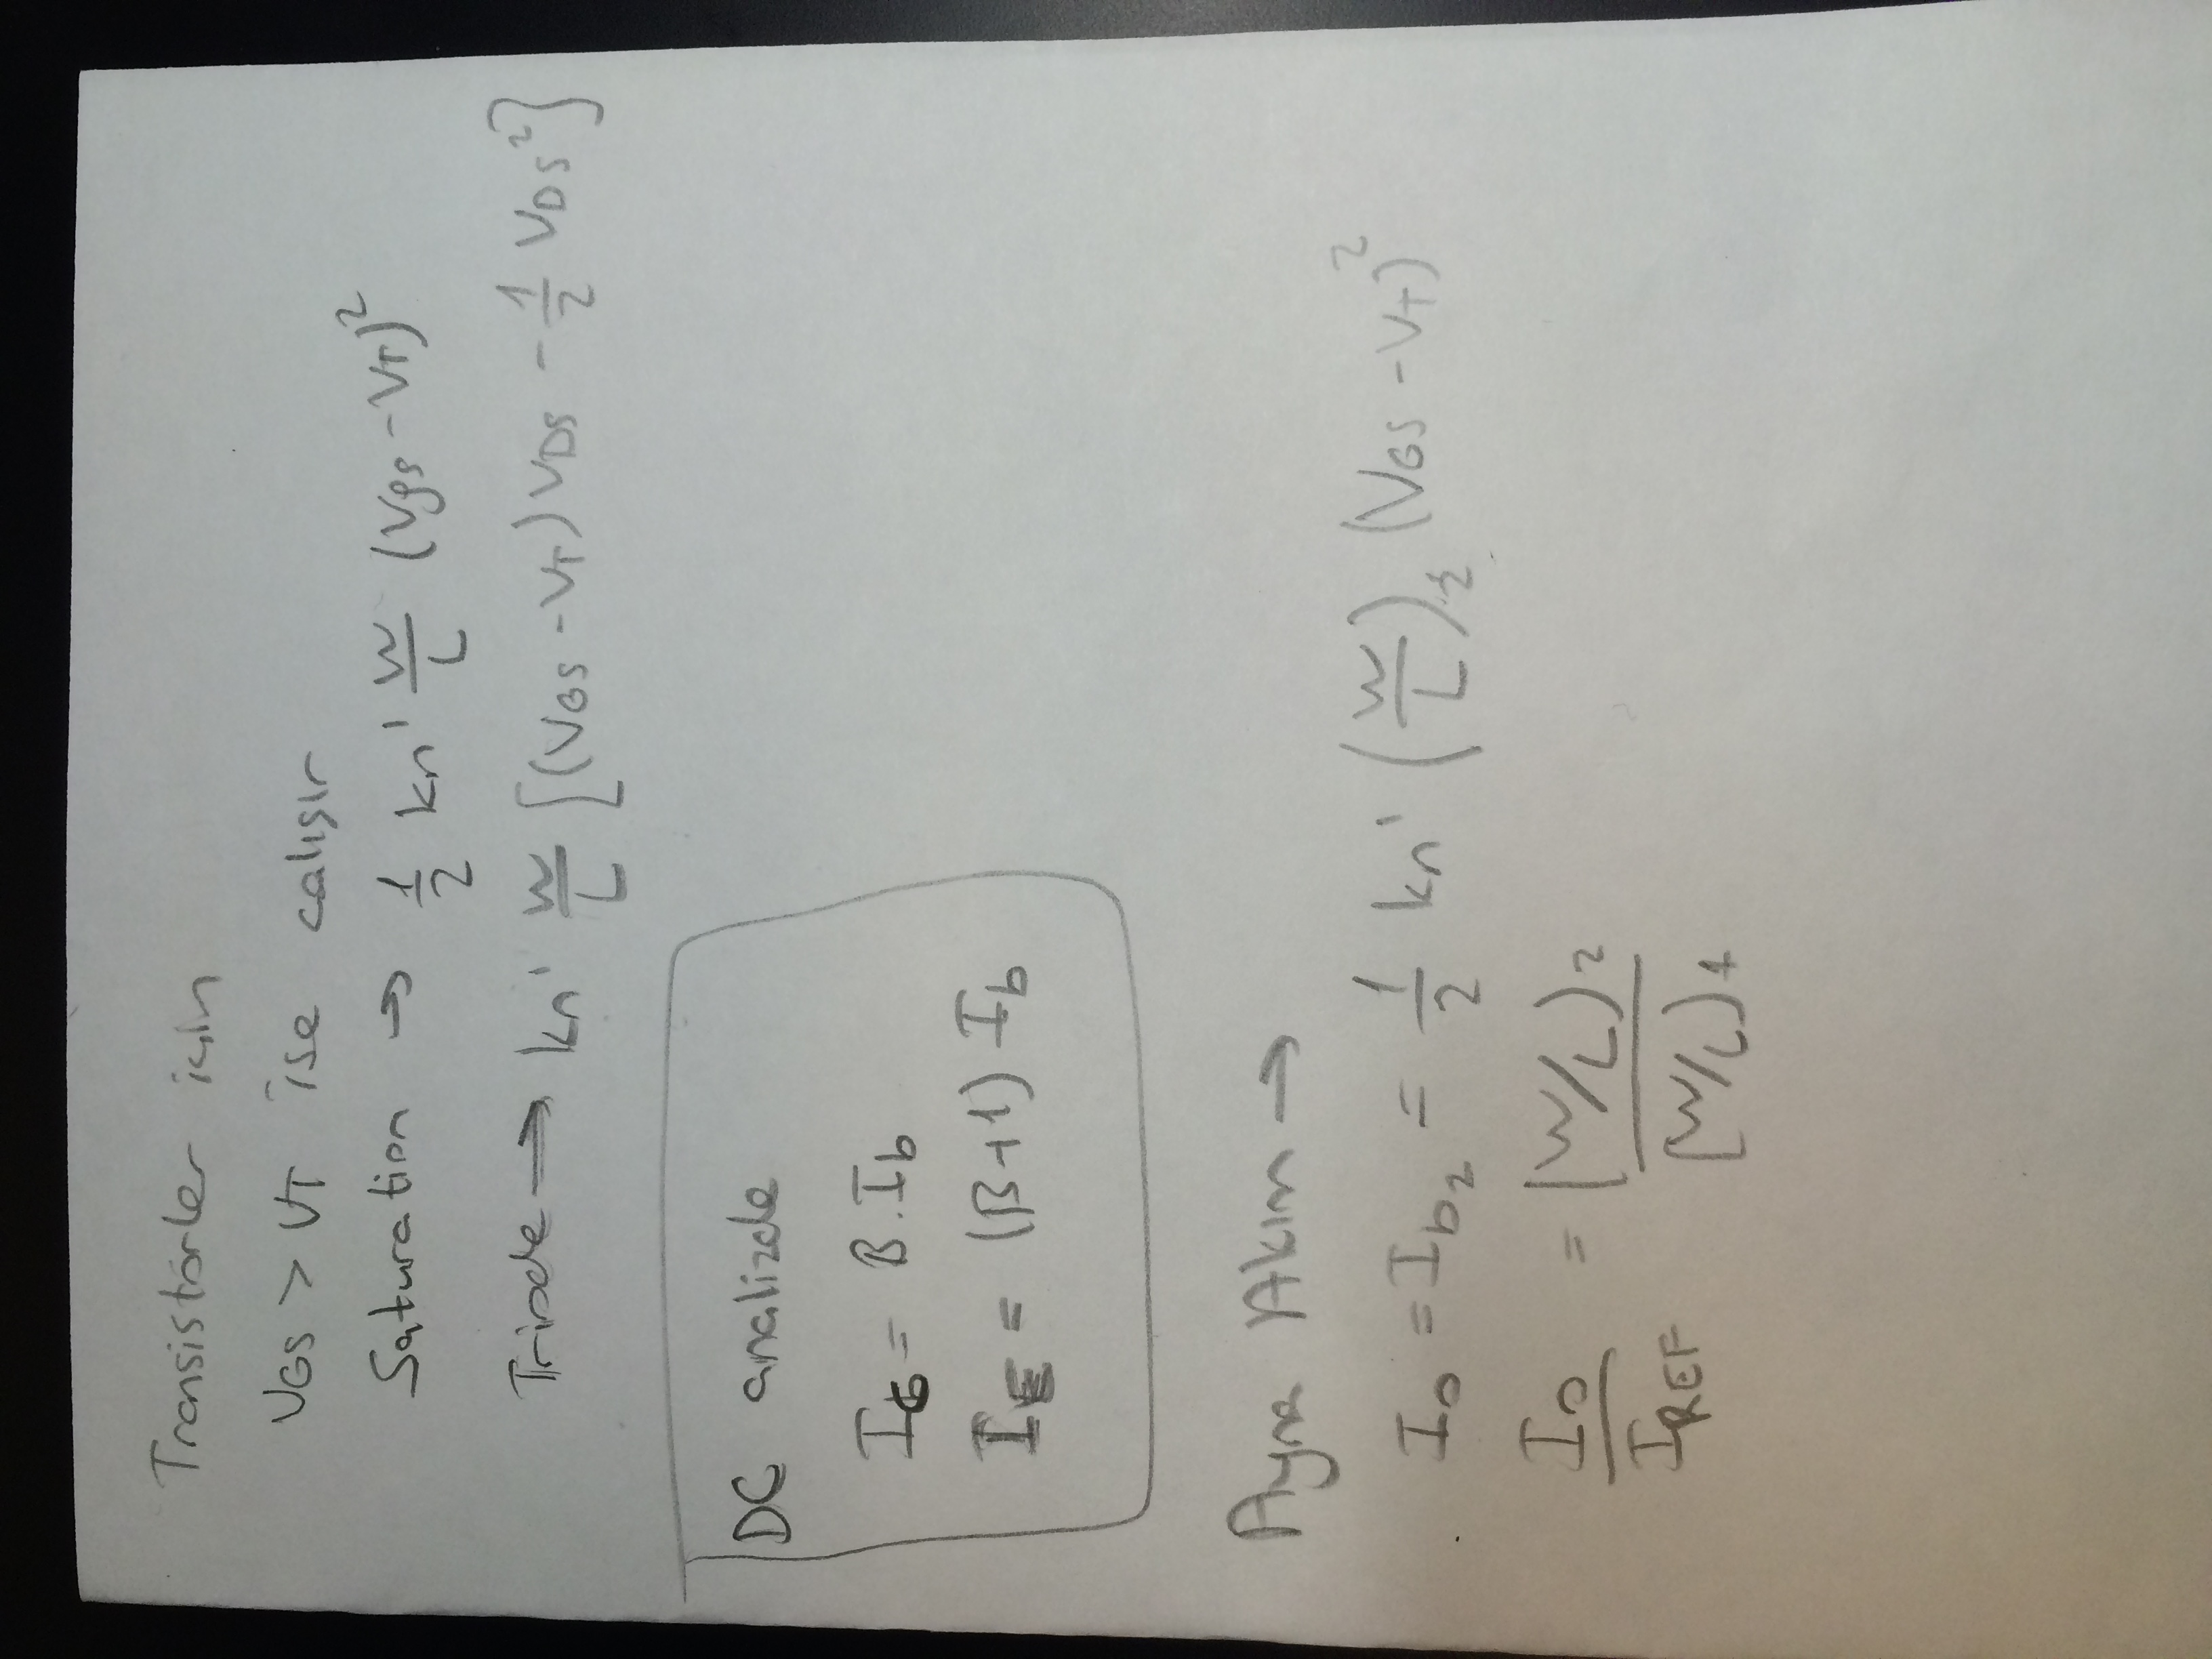 Transistörler için
VGS > VT ise calışır
Saturation → 1/2 kn' W/L (Vgs - VT)²
Triode → kn' W/L [(VGS - VT) VDS - 1/2 VDS²}
DC analizde
IC = B.Ib
IE = (B+1) Ib
Ayna Akım →
Io = Ib2 = 1/2 kn' (W/L)2 (VGS - VT)²
Io/IREF = (W/L)2/(W/L)1